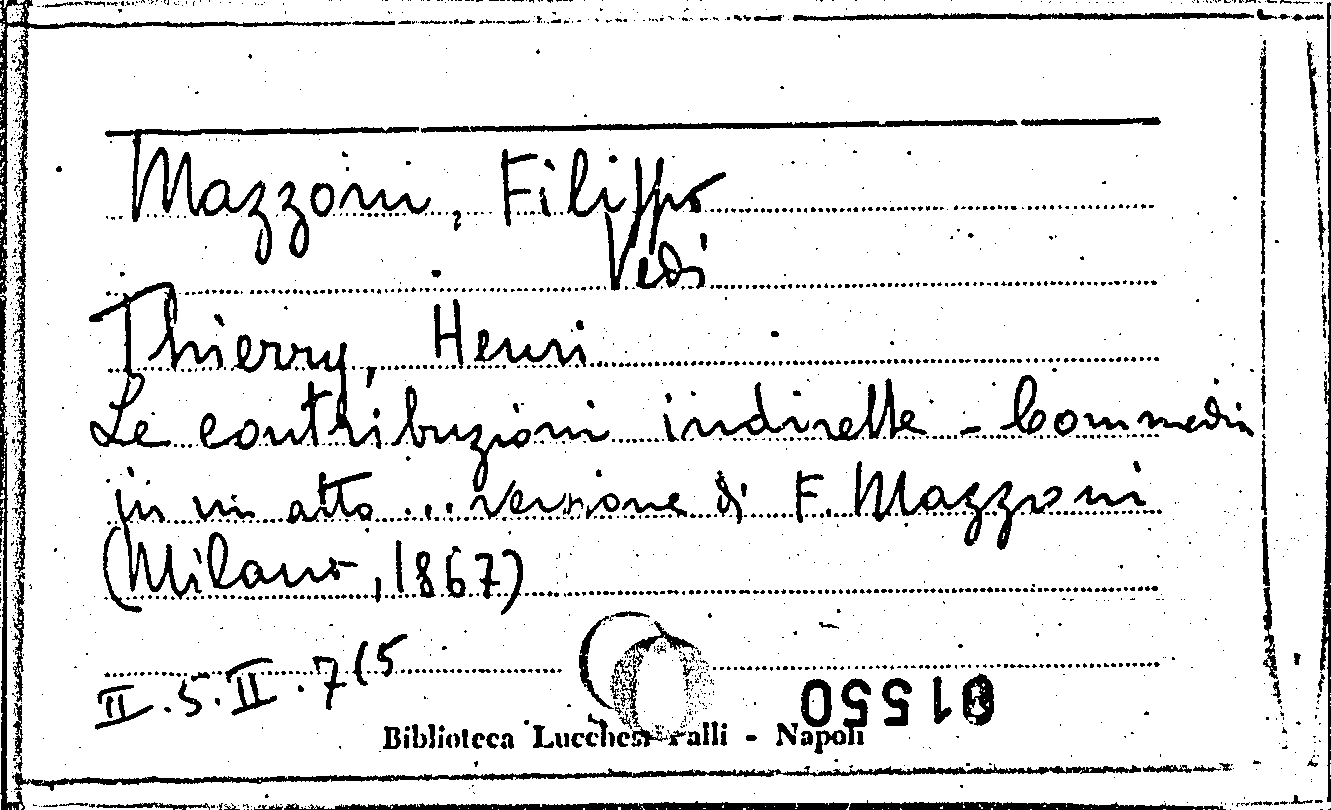 Mazzoni, Filippo
Vedi
Thierry, Henri
Le contribuzioni indirette - Commedia
in un atto ... versione di F. Mazzoni
(Milano, 1867)
II.5.II.7(5
01550
Biblioteca Lucchesi Palli - Napoli